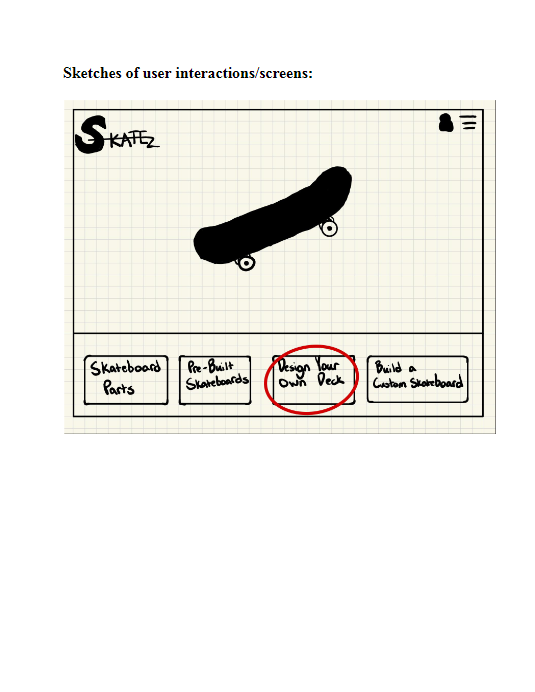 Sketches of user interactions/screens:
SKATEZ
Skateboard
Parts
Pre-Built
Skateboards
Design Your
Own Deck
Build a
Custom Skateboard